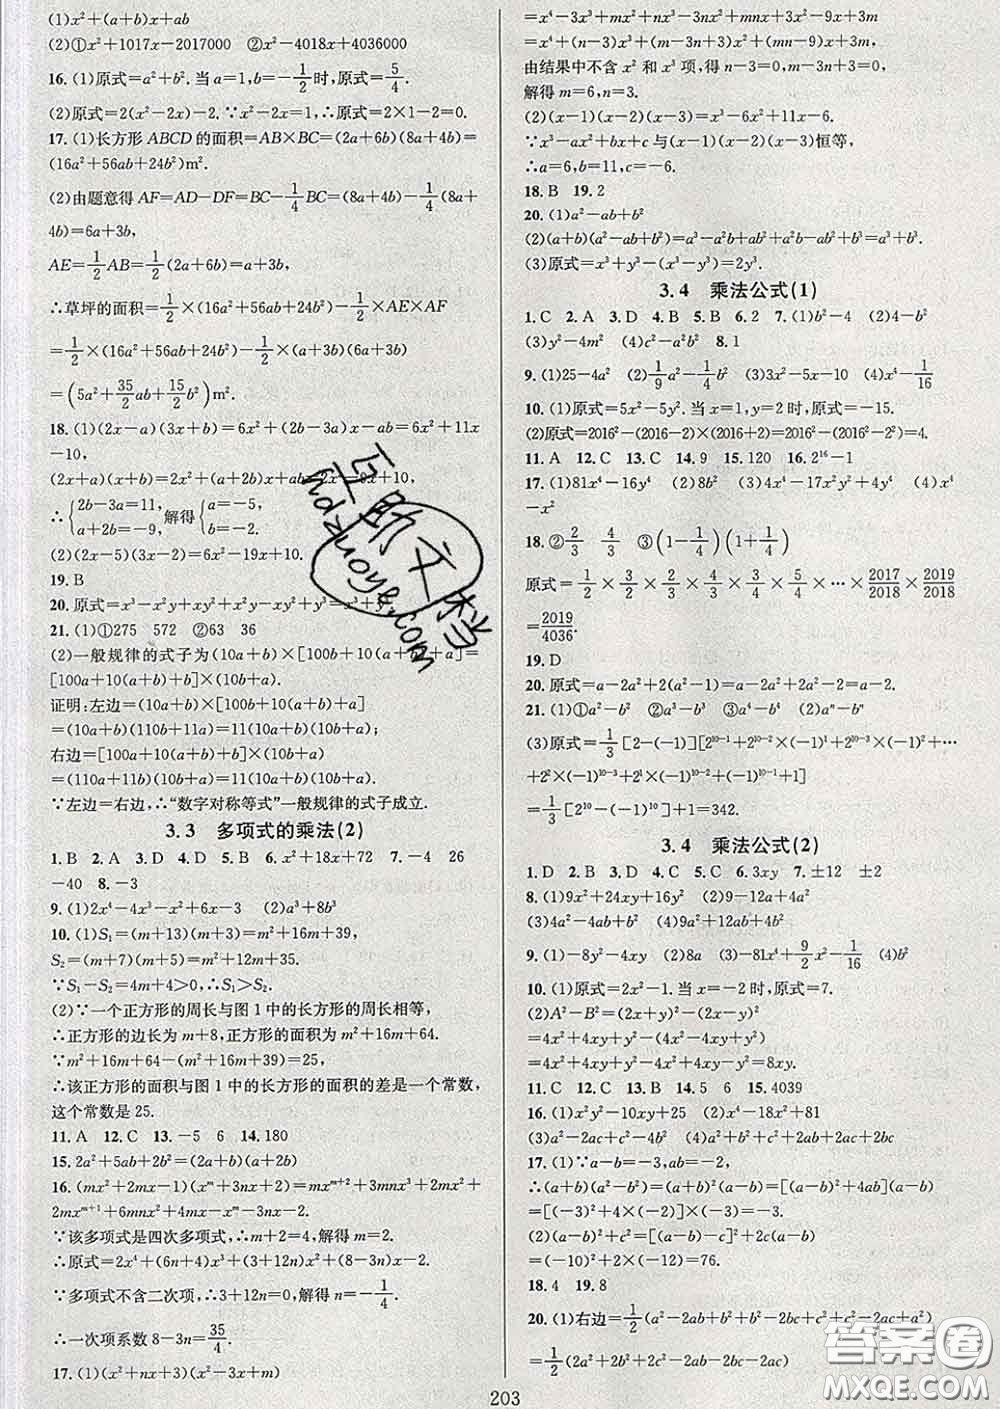 (1)x²+(a+b)x+ab
(2)①x²+1017x-2017000 ②x²-4018x+4036000
16. (1)原式=a²+b². 当 a=1,b=-1/2时,原式=5/4.
(2)原式=2(x²-2x)-2. ∵x²-2x=1,∴原式=2×1-2=0.
17. (1)长方形 ABCD 的面积=AB×BC=(2a+6b)(8a+4b)=
(16a²+56ab+24b²)m².
(2)由题意得 AF=AD-DF=BC-1/4BC=(8a+4b)-1/4(8a+
4b)=6a+3b,
AE=1/2AB=1/2(2a+6b)=a+3b,
∴草坪的面积=1/2×(16a²+56ab+24b²)-1/2×AE×AF
=1/2×(16a²+56ab+24b²)-1/2×(a+3b)(6a+3b)
=(5a²+35/2ab+15/2b²)m².
18. (1)(2x-a)(3x+b)=6x²+(2b-3a)x-ab=6x²+11x
-10,
(2x+a)(x+b)=2x²+(a+2b)x+ab=2x²-9x+10,
∴{2b-3a=11, a+2b=-9, 解得{a=-5, b=-2.
(2)(2x-5)(3x-2)=6x²-19x+10.
19. B
20. 原式=x³-x²y+xy²+x²y-xy²+y³=x³+y³.
21. (1)①275 572 ②63 36
(2)一般规律的式子为(10a+b)×[100b+10(a+b)+a]=
[100a+10(a+b)+b]×(10b+a).
证明:左边=(10a+b)×[100b+10(a+b)+a]
=(10a+b)(110b+11a)=11(10a+b)(10b+a);
右边=[100a+10(a+b)+b]×(10b+a)
=(110a+11b)(10b+a)=11(10a+b)(10b+a).
∵左边=右边,∴“数字对称等式”一般规律的式子成立.
3.3 多项式的乘法(2)
1. B 2. A 3. D 4. D 5. B 6. x²+18x+72 7. -4 26
-40 8. -3
9. (1)2x⁴-4x³-x²+6x-3 (2)a³+8b³
10. (1)S₁=(m+13)(m+3)=m²+16m+39,
S₂=(m+7)(m+5)=m²+12m+35.
∵S₁-S₂=4m+4>0,∴S₁>S₂.
(2)∵一个正方形的周长与图 1 中的长方形的周长相等,
∴正方形的边长为 m+8,正方形的面积为 m²+16m+64.
∵m²+16m+64-(m²+16m+39)=25,
∴该正方形的面积与图 1 中的长方形的面积的差是一个常数,
这个常数是 25.
11. A 12. C 13. -5 6 14. 180
15. 2a²+5ab+2b²=(2a+b)(a+2b)
16. (mx²+2mx-1)(xᵐ+3nx+2)=mxᵐ⁺²+3mnx³+2mx²+
2mxᵐ⁺¹+6mnx²+4mx-xᵐ-3nx-2.
∵该多项式是四次多项式,∴m+2=4,解得 m=2.
∴原式=2x⁴+(6n+4)x³+(3+12n)x²+(8-3n)x-2.
∵多项式不含二次项,∴3+12n=0,解得 n=-1/4.
∴一次项系数 8-3n=35/4.
17. (1)(x²+nx+3)(x²-3x+m)
=x⁴-3x³+mx²+nx³-3nx²+mnx+3x²-9x+3m
=x⁴+(n-3)x³+(m-3n+3)x²+(mn-9)x+3m,
由结果中不含 x² 和 x³ 项,得 n-3=0,m-3n+3=0,
解得 m=6,n=3.
(2)(x-1)(x-2)(x-3)=x³-6x²+11x-6.
∵x³-ax²+bx+c 与(x-1)(x-2)(x-3)恒等,
∴a=6,b=11,c=-6.
18. B 19. 2
20. (1)a²-ab+b²
(2)(a+b)(a²-ab+b²)=a³-a²b+ab²+a²b-ab²+b³=a³+b³.
(3)原式=x³+y³-(x³-y³)=2y³.
3.4 乘法公式(1)
1. C 2. A 3. D 4. B 5. B 6. 2 7. (1)b²-4 (2)4-b²
(3)y²-4m² (4)c²-a²b² 8. 1
9. (1)25-4a² (2)1/9a²-1/4b² (3)3x²-5x-10 (4)x⁴-1/16
10. (1)原式=5x²-5y². 当 x=1,y=2 时,原式=-15.
(2)原式=2016²-(2016-2)×(2016+2)=2016²-(2016²-2²)=4.
11. A 12. C 13. C 14. 9 15. 120 16. 2¹⁶-1
17. (1)81x⁴-16y⁴ (2)8b² (3)4x⁴-17x²y²+4y⁴ (4)x⁴
-x²
18. ②2/3 4/3 ③(1-1/4)(1+1/4)
原式=1/2×3/2×2/3×4/3×3/4×5/4×…×2017/2018×2019/2018
=2019/4036.
19. D
20. 原式=a-2a²+2(a²-1)=a-2a²+2a²-2=a-2.
21. (1)①a²-b² ②a³-b³ ③a⁴-b⁴ (2)aⁿ-bⁿ
(3)原式=1/3[2-(-1)][2¹⁰⁻¹+2¹⁰⁻²×(-1)¹+2¹⁰⁻³×(-1)²+…
+2²×(-1)¹⁰⁻³+2¹×(-1)¹⁰⁻²+(-1)¹⁰⁻¹+1]
=1/3[2¹⁰-(-1)¹⁰]+1=342.
3.4 乘法公式(2)
1. D 2. D 3. D 4. C 5. C 6. 3xy 7. ±12 ±2
8. (1)9x²+24xy+16y² (2)9-12a+4a²
(3)4a²-4ab+b² (4)9a²+12ab+4b²
9. (1)-8y²-4xy (2)8a (3)-81x⁴+9/2x²-1/16 (4)b²
10. (1)原式=2x²-1. 当 x=-2 时,原式=7.
(2)A²-B²=(2x+y)²-(2x-y)²
=4x²+4xy+y²-(4x²-4xy+y²)
=4x²+4xy+y²-4x²+4xy-y²=8xy.
11. C 12. C 13. B 14. 5 6 15. 4039
16. (1)x²y²-10xy+25 (2)x⁴-18x²+81
(3)a²-2ac+c²-4b² (4)a²+b²+c²+2ab+2ac+2bc
17. (1)∵a-b=-3,ab=-2,
∴(a+b)(a²-b²)=(a+b)²(a-b)=[(a-b)²+4ab](a-b)
=[(-3)²+4×(-2)]×(-3)=-3.
(2)(a-b-c)²=[(a-b)-c]²
=(-10)²+2×(-12)=76.
18. 4 19. 8
20. (1)右边=1/2(a²-2ab+b²+b²-2bc+c²+c²-2ac+a²)
=1/2(2a²+2b²+2c²-2ab-2bc-2ac)
203
互助文档
hdzuoye.com
答案圈
MXQE.COM